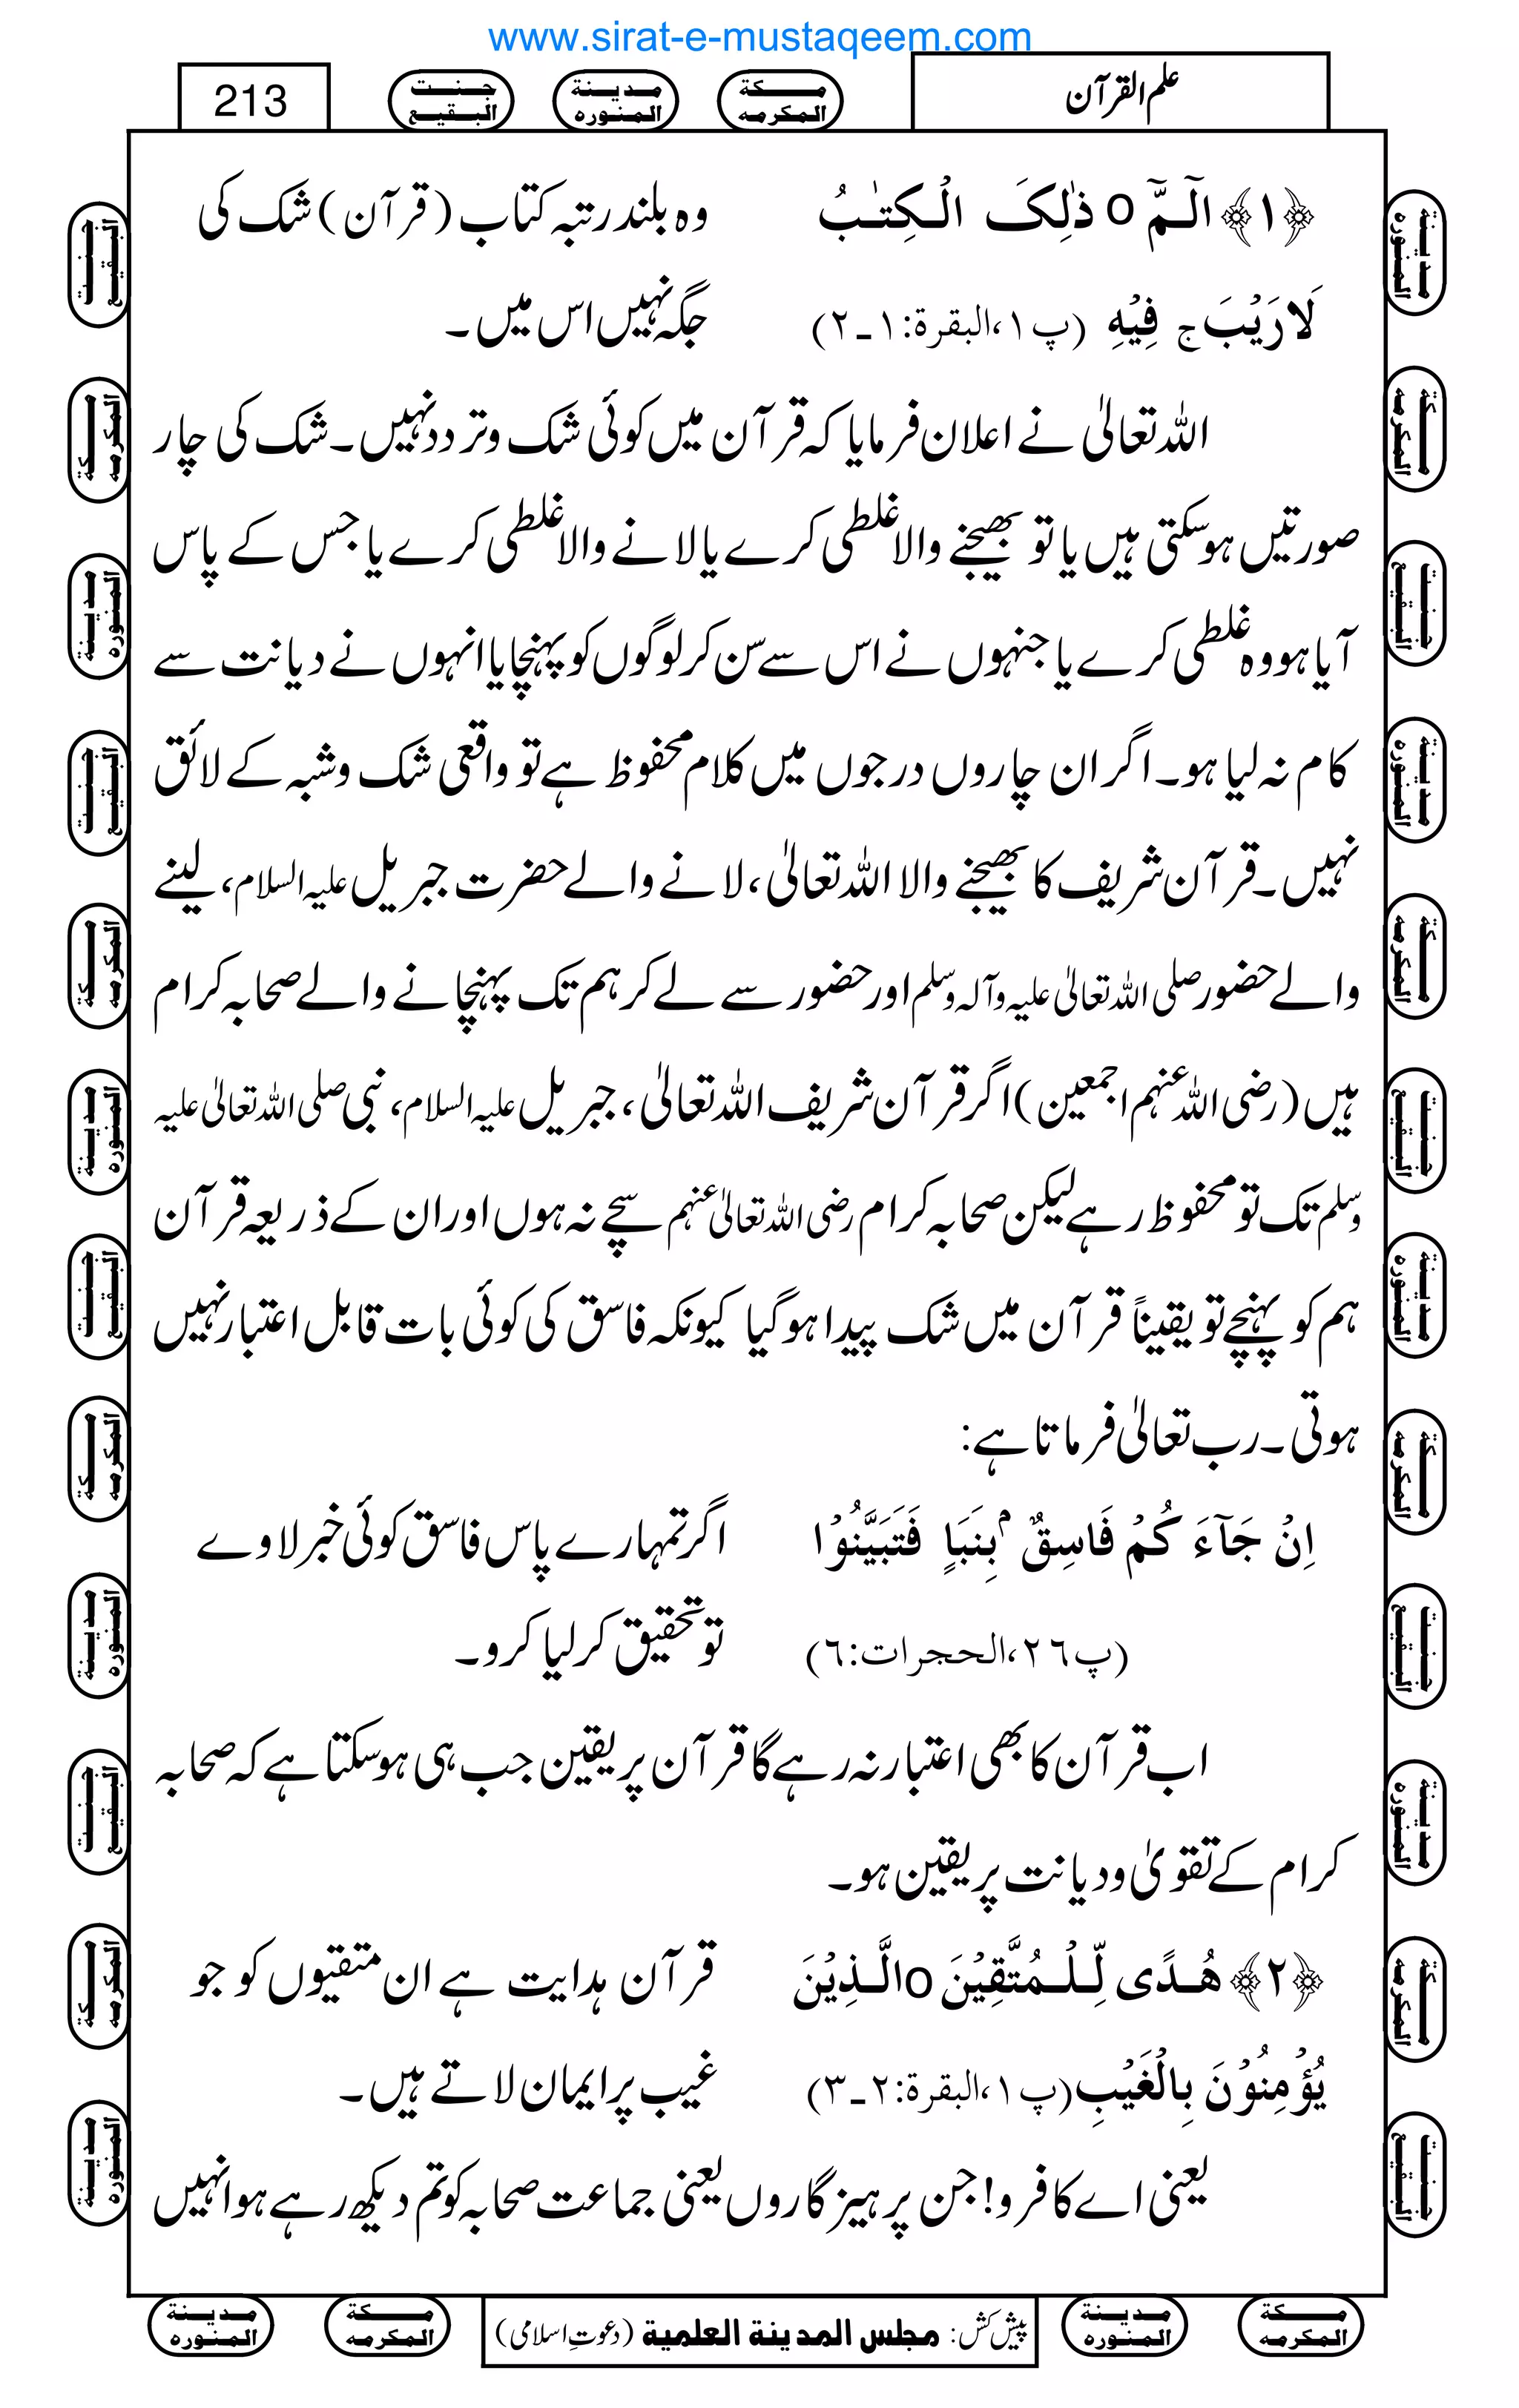 www.sirat-e-mustaqeem.com
علم القرآن
مكة المكرمه
مدينة المنوره
جنت البقيع
213
﴿۱﴾ الٓـمّٓ o ذٰلِکَ الْـکِتٰـبُ وہ بلند رتبہ کتاب (قرآن) شک کی
لَا رَیْبَ ج فِیْہِ (پ۱،البقرۃ:۱۔۲) جگہ نہیں اس میں۔
اللہ تعالیٰ نے اعلان فرمایا کہ قرآن میں کوئی شک وتردد نہیں۔ شک کی چار
صورتیں ہوسکتی ہیں یا تو بھیجنے والا غلطی کرے یا لانے والا غلطی کرے یا جس کے پاس
آیا ہو وہ غلطی کرے یا جنہوں نے اس سے سن کر لوگوں کو پہنچایا انہوں نے دیانت سے
کام نہ لیا ہو۔ اگر ان چاروں درجوں میں کلام محفوظ ہے تو واقعی شک وشبہ کے لائق
نہیں۔ قرآن شریف کا بھیجنے والا اللہ تعالیٰ، لانے والے حضرت جبریل علیہ السلام، لینے
والے حضور صلی اللہ تعالیٰ علیہ وآلہ وسلم اور حضور سے لے کر ہم تک پہنچانے والے صحابہ کرام
ہیں (رضی اللہ عنہم اجمعین) اگر قرآن شریف اللہ تعالیٰ، جبریل علیہ السلام، نبی صلی اللہ تعالیٰ علیہ
وسلم تک تو محفوظ رہے لیکن صحابہ کرام رضی اللہ تعالیٰ عنہم سچے نہ ہوں اور ان کے ذریعہ قرآن
ہم کو پہنچے تو یقیناً قرآن میں شک پیدا ہوگیا کیونکہ فاسق کی کوئی بات قابل اعتبار نہیں
ہوتی۔ رب تعالیٰ فرماتا ہے:
اِنْ جَآءَ کُمْ فَاسِقٌۢ بِنَبَاٍ فَتَبَیَّنُوْا اگر تمہارے پاس فاسق کوئی خبر لاوے
(پ۲۶،الحجرات:۶) تو تحقیق کرلیا کرو۔
اب قرآن کا بھی اعتبار نہ رہے گا قرآن پر یقین جب ہی ہوسکتا ہے کہ صحابہ
کرام کے تقویٰ ودیانت پر یقین ہو۔
﴿۲﴾ ھُـدًی لِّـلْـمُتَّقِیْنَ o الَّـذِیْنَ قرآن ہدایت ہے ان متقیوں کو جو
یُؤْمِنُوْنَ بِالْغَیْبِ (پ۱،البقرۃ:۲۔۳) غیب پر ایمان لاتے ہیں۔
یعنی اے کافرو! جن پرہیزگاروں یعنی جماعت صحابہ کو تم دیکھ رہے ہو انہیں
پیش کش: مجلس المدينة العلمية (دعوتِ اسلامی)
مكة المكرمه
مدينة المنوره
مكة المكرمه
مدينة المنوره